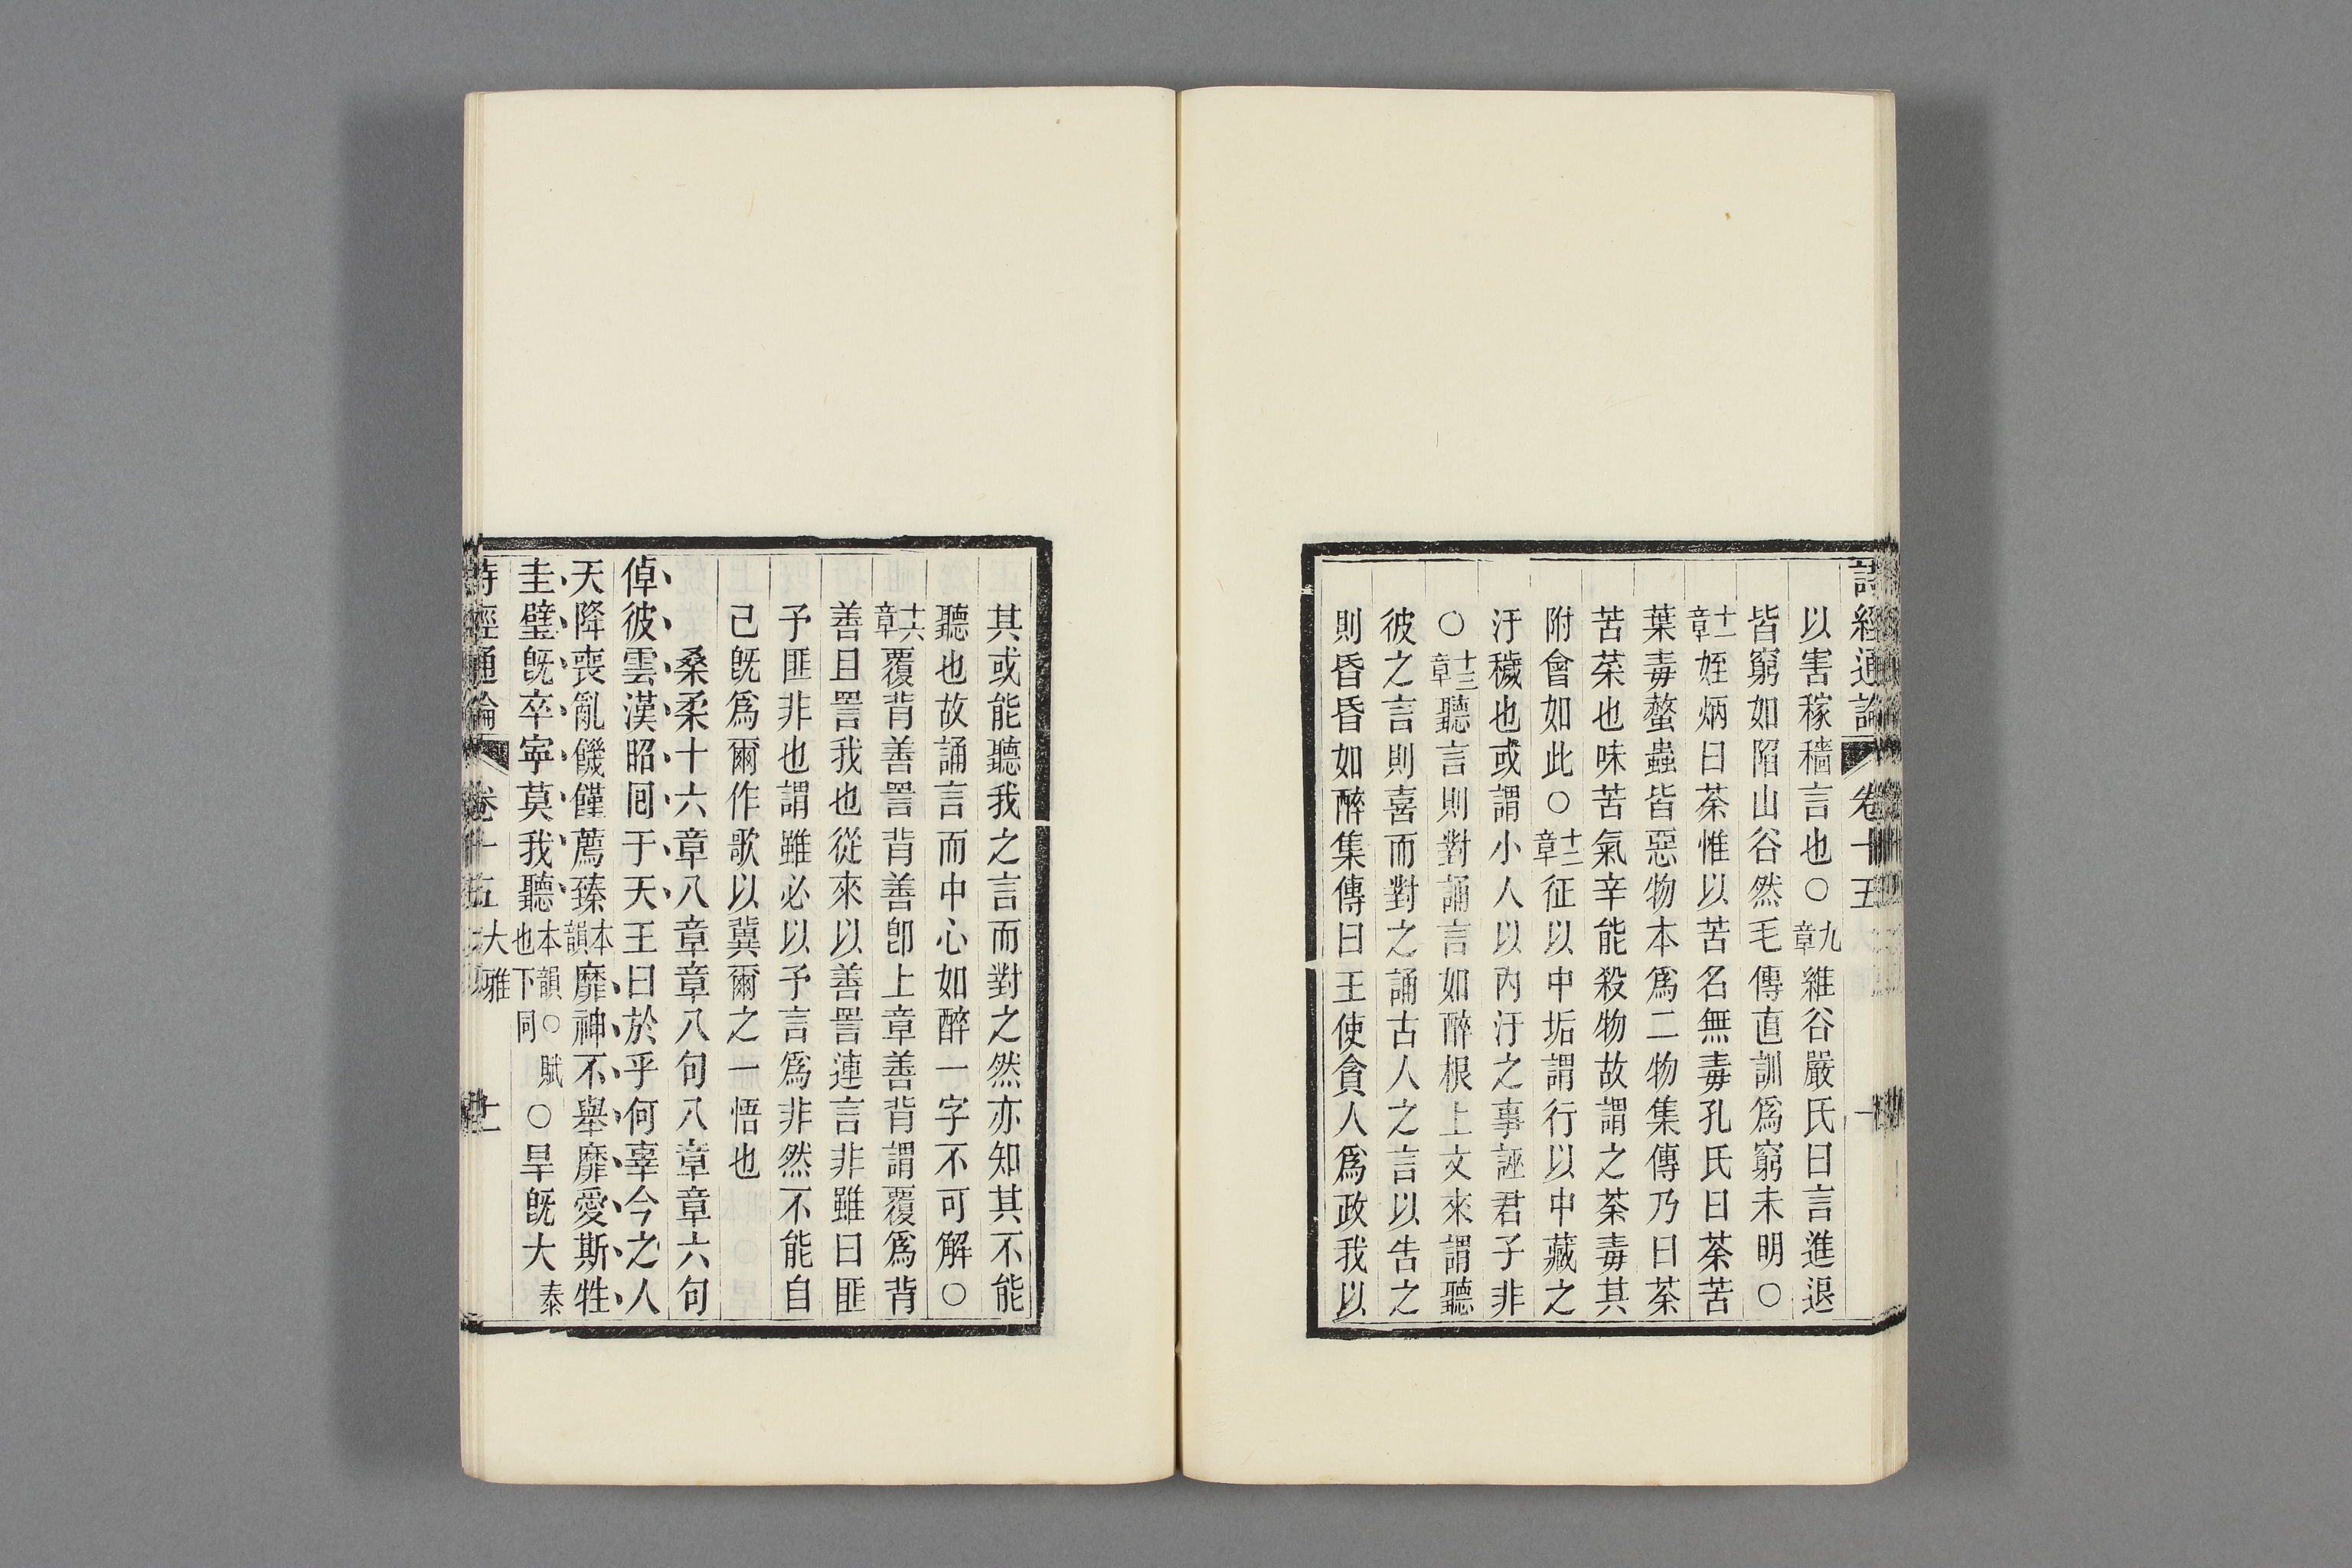 詩經通論 卷十五
以害稼穡言也○九章維谷嚴氏曰言進退
皆窮如陷山谷然毛傳直訓爲窮未明○
十一章姪炳曰荼惟以苦名無毒孔氏曰荼苦
葉毒螫蟲皆惡物本爲二物集傳乃曰荼
苦菜也味苦氣辛能殺物故謂之荼毒其
附會如此○十二章征以中垢謂行以中藏之
汙穢也或謂小人以內汙之事誣君子非
○十三章聽言則對誦言如醉根上文來謂聽
彼之言則喜而對之誦古人之言以告之
則昏昏如醉集傳曰王使貪人爲政我以
其或能聽我之言而對之然亦知其不能
聽也故誦言而中心如醉一字不可解○
十六章覆背善詈背善卽上章善背謂覆爲背
善且詈我也從來以善詈連言非雖曰匪
予匪非也謂雖必以予言爲非然不能自
己旣爲爾作歌以冀爾之一悟也
桑柔十六章八章章八句八章章六句
倬彼雲漢昭囘于天王曰於乎何辜今之人
天降喪亂饑饉薦臻本韻靡神不舉靡愛斯牲
圭璧旣卒寧莫我聽本韻○賦也下同○旱旣大泰
詩經通論 卷十五 大雅 十一